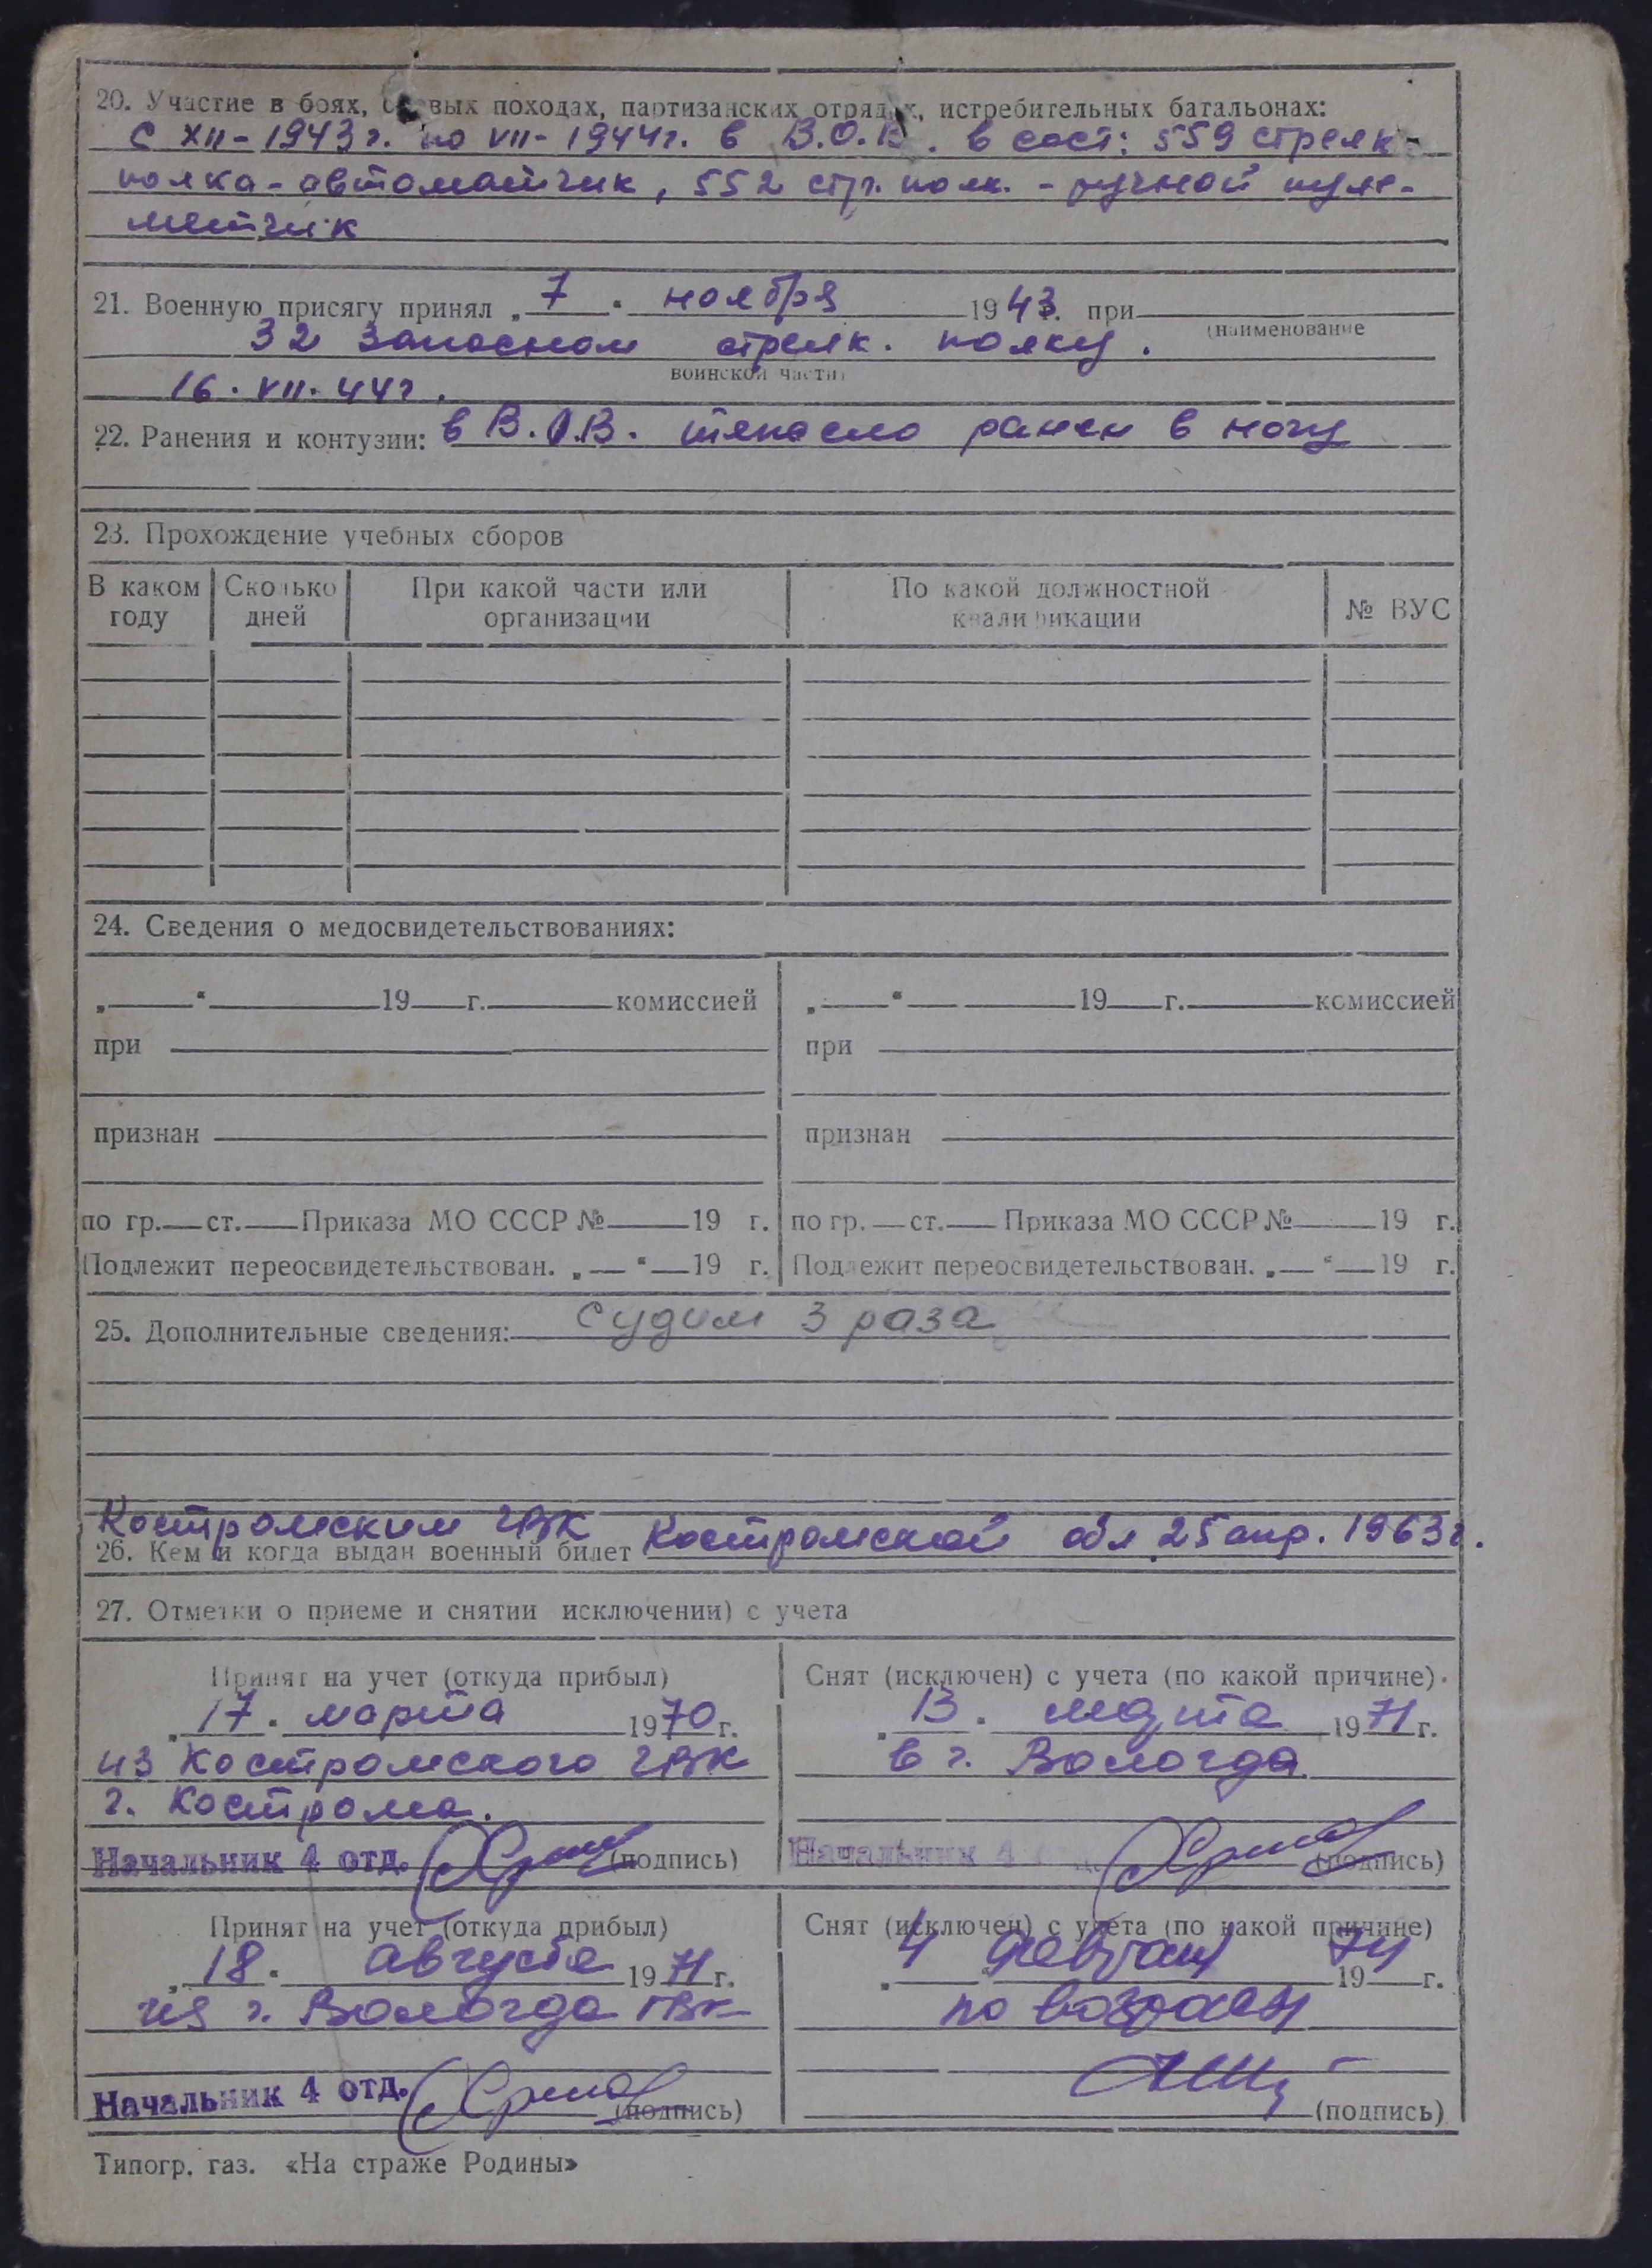 20. Участие в боях, боевых походах, партизанских отрядах, истребительных батальонах:
с XII-1943г. по VII-1944г. в В.О.В. в сост: 559 стрелк-
полка-автоматчик, 552 стр. полк. - ручной пуле-
метчик
21. Военную присягу принял „ 7 " ноября 1943г. при
(наименование
32 запасном стрелк. полку.
воинской части)
16.VII.44г.
22. Ранения и контузии: в В.О.В. тяжело ранен в ногу
23. Прохождение учебных сборов
В каком году | Сколько дней | При какой части или организации | По какой должностной квалификации | № ВУС
24. Сведения о медосвидетельствованиях:
„ " 19 г. комиссией | „ " 19 г. комиссией
при | при
признан | признан
по гр. ст. Приказа МО СССР № 19 г. | по гр. ст. Приказа МО СССР № 19 г.
Подлежит переосвидетельствован. „ " 19 г. | Подлежит переосвидетельствован. „ " 19 г.
25. Дополнительные сведения: судим 3 раза
Костромским ГВК
26. Кем и когда выдан военный билет Костромской обл 25 апр. 1963г.
27. Отметки о приеме и снятии исключении) с учета
Принят на учет (откуда прибыл) | Снят (исключен) с учета (по какой причине)
„ 17 " марта 1970 г. | „ 13 " марта 1971 г.
из Костромского ГВК | в г. Вологда
г. Кострома.
Начальник 4 отд. (подпись) | Начальник 4 (подпись)
Принят на учет (откуда прибыл) | Снят (исключен) с учета (по какой причине)
„ 18 " августа 1971 г. | „ 4 " февраля 1974 г.
из г. Вологда ГВК | по возрасту
Начальник 4 отд. (подпись) | (подпись)
Типогр. газ. «На страже Родины»